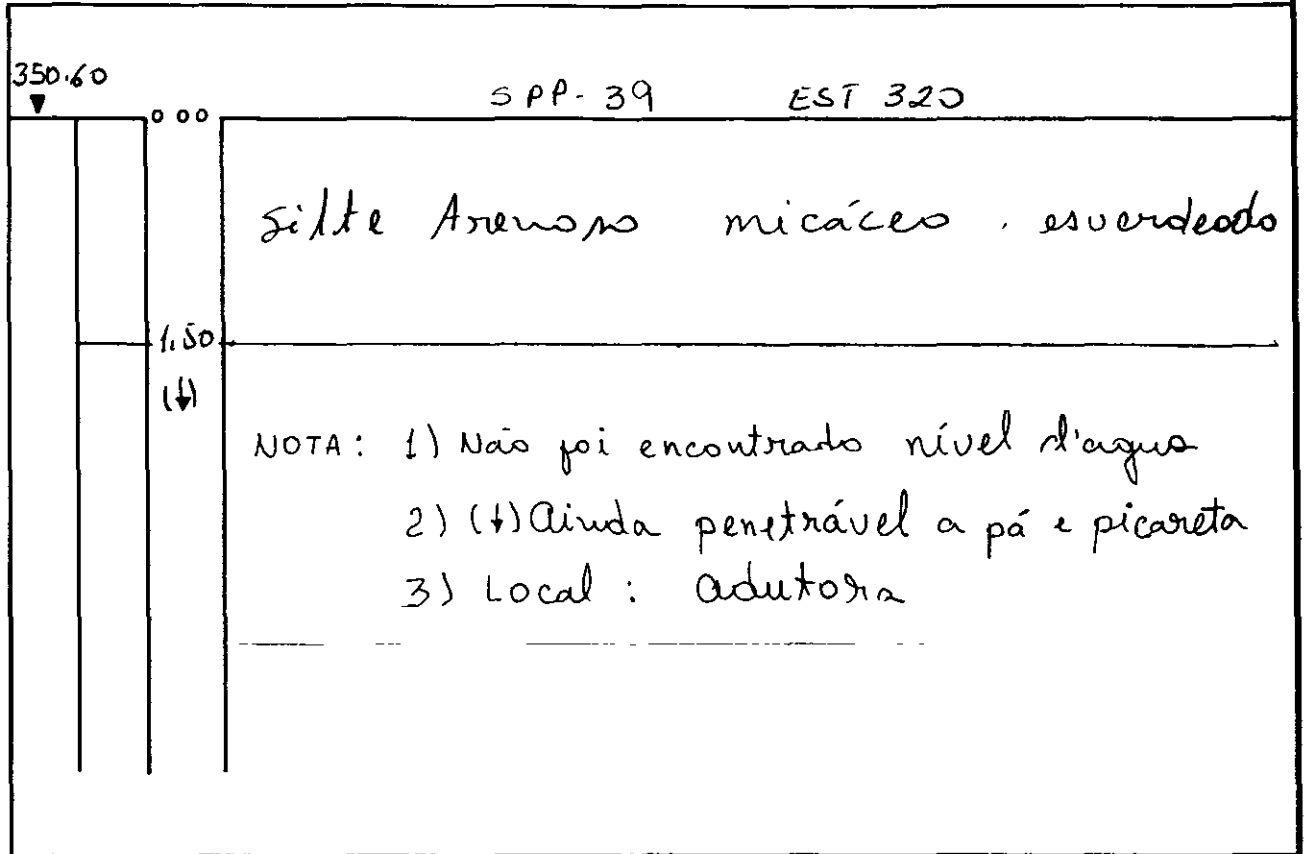 350.60
SPP-39 EST 320
0 00
Silte Arenoso micáceo . esverdeado
1,50
(↓)
NOTA: 1) Não foi encontrado nível d'agua
2) (↓) Ainda penetrável a pá e picareta
3) Local : adutora